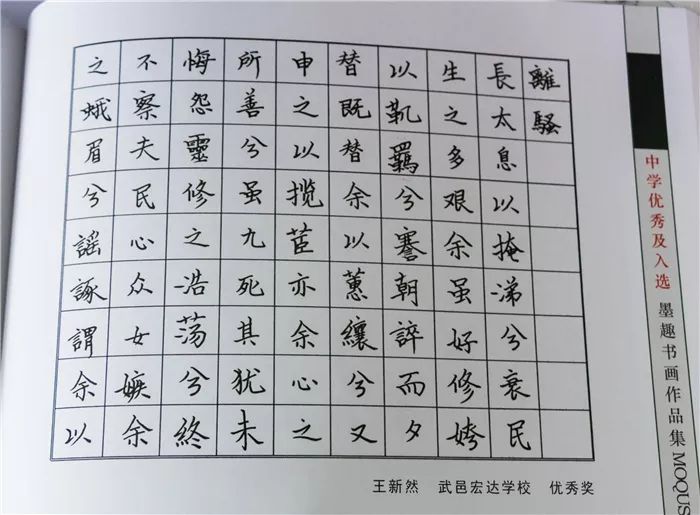 離騷
長太息以掩涕兮衰民
生之多艰余虽好修姱
以靰羈兮謇朝誶而夕
替既替余以蕙纕兮又
申之以揽茝亦余心之
所善兮虽九死其犹未
悔怨靈修之浩荡兮終
不察夫民心众女嫉余
之蛾眉兮謠諑謂余以
王新然 武邑宏达学校 优秀奖
中学优秀及入选 墨趣书画作品集 MOQUS